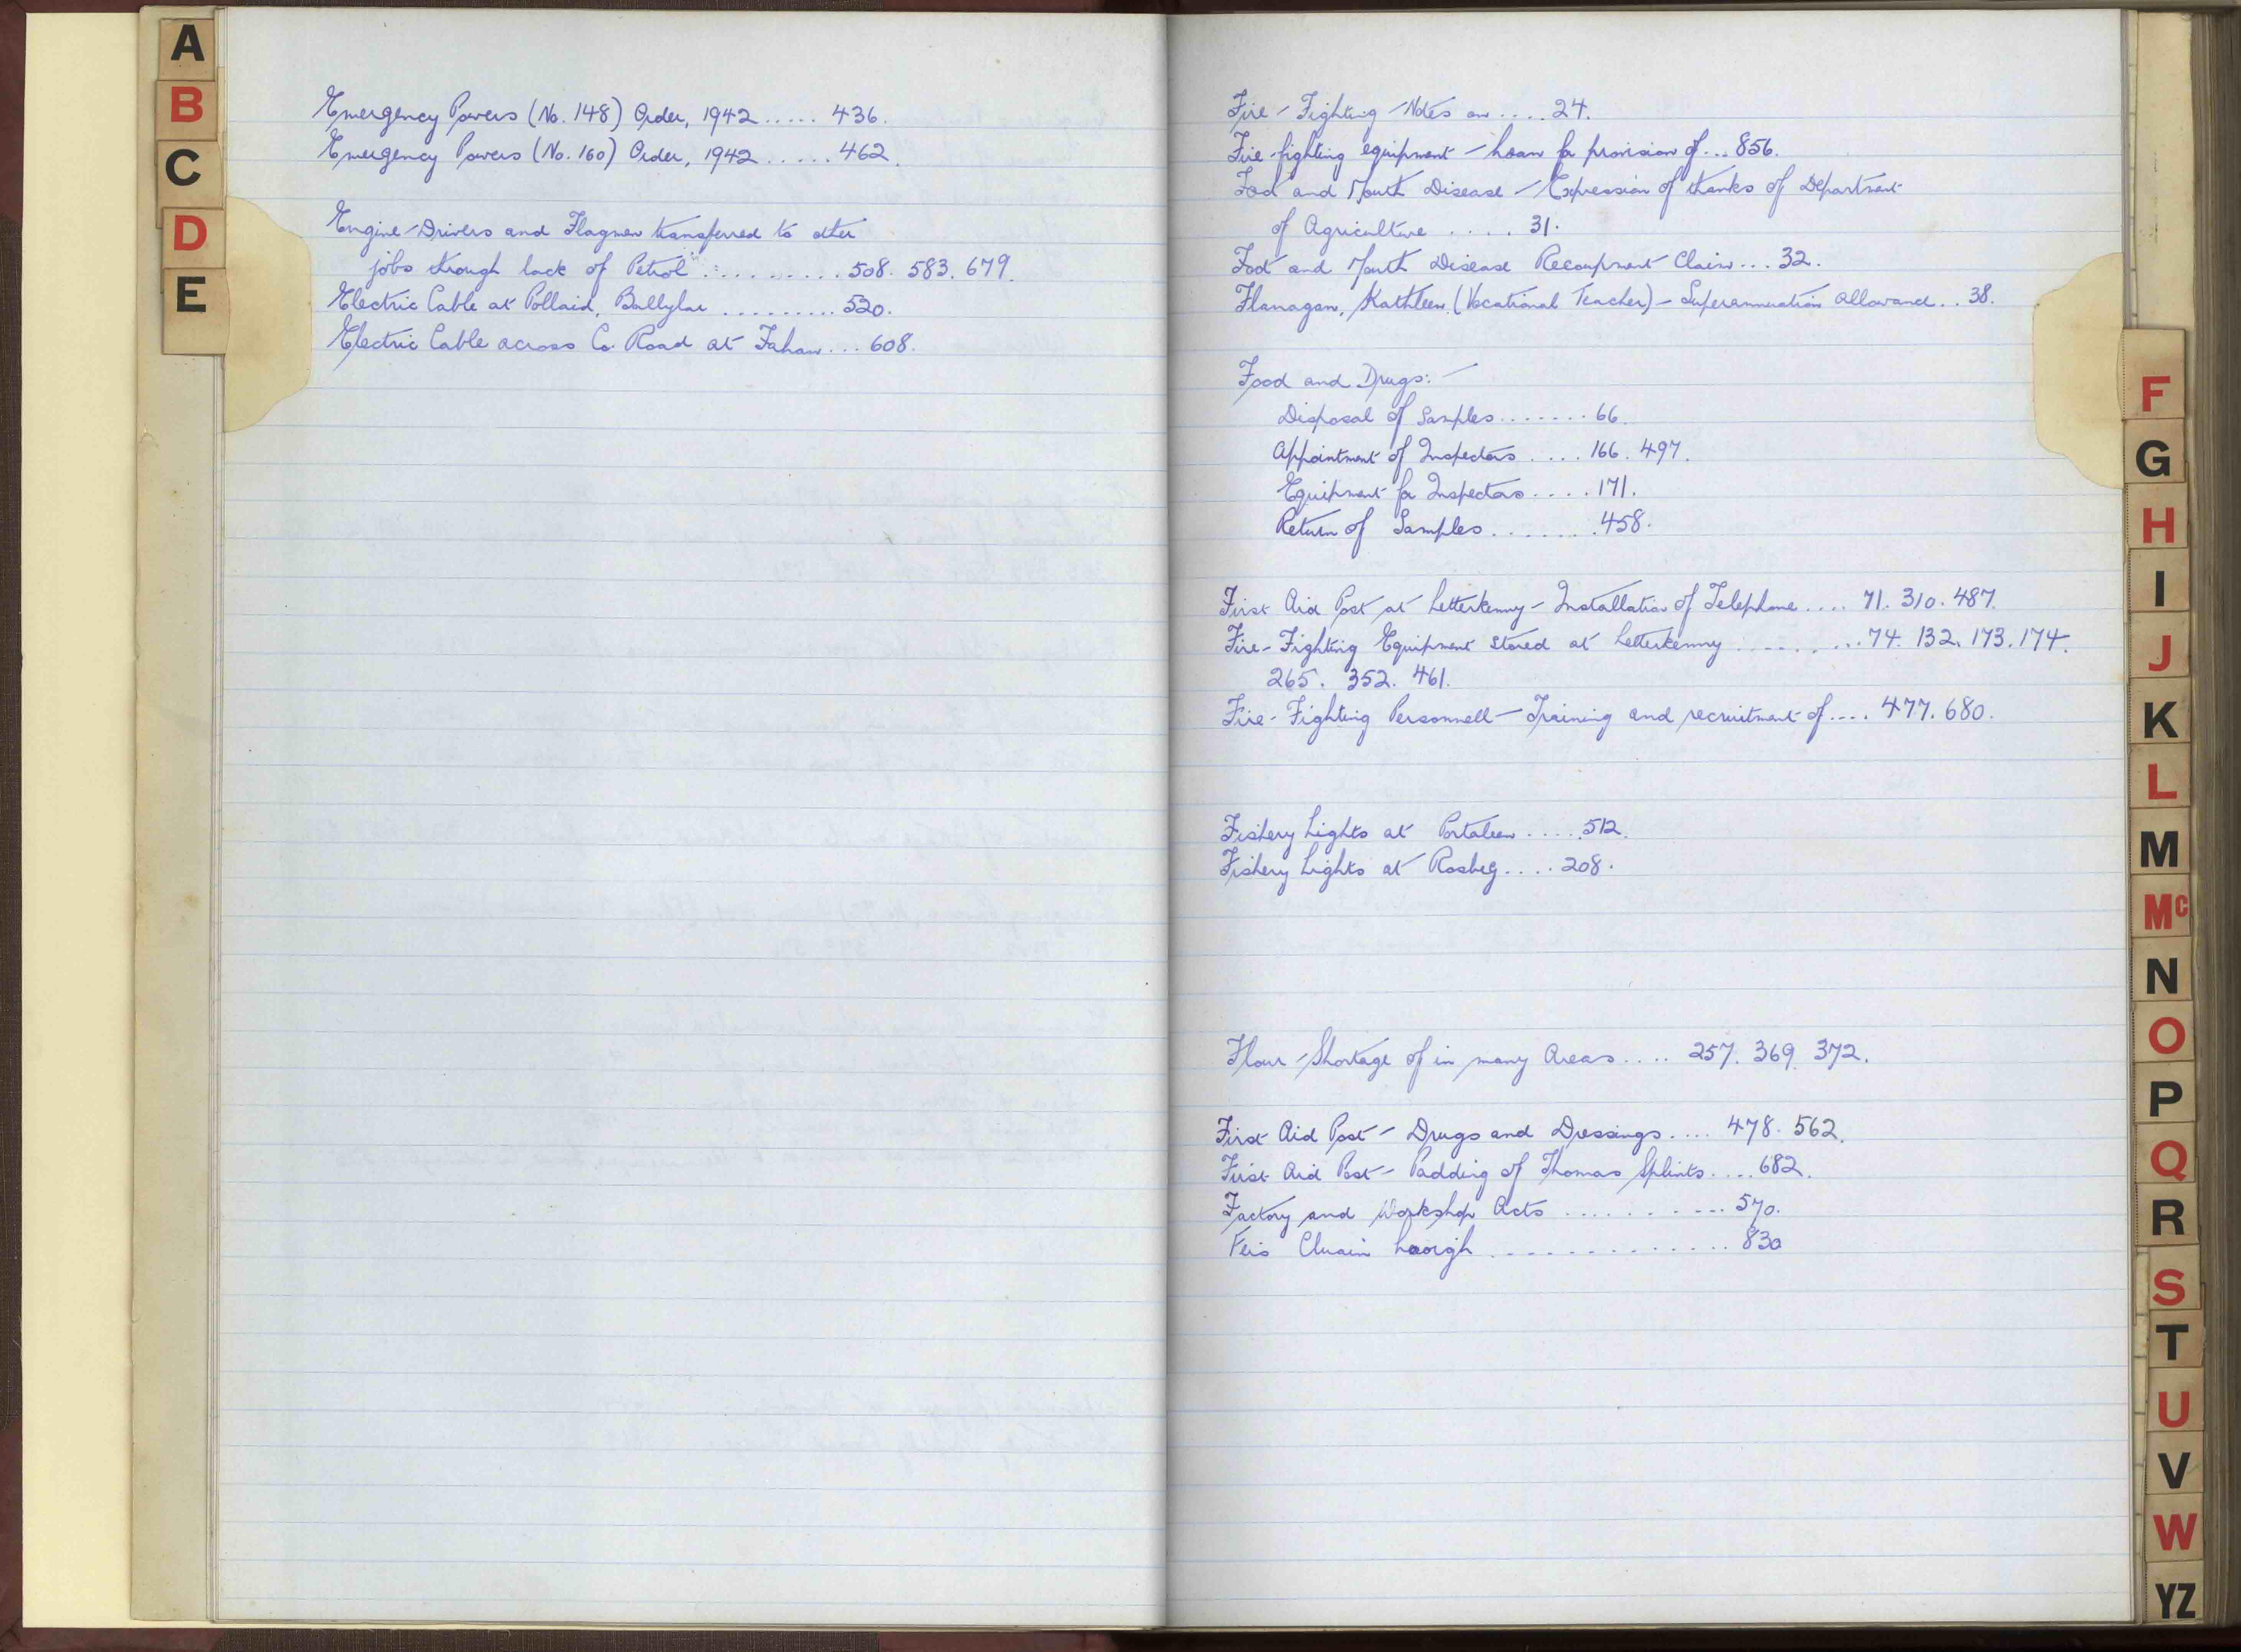 A
B
C
D
E
Emergency Powers (No. 148) Order, 1942 ..... 436.
Emergency Powers (No. 160) Order, 1942 ...... 462.
Engine-Drivers and Flagmen transferred to other
jobs through lack of Petrol ........... 508. 583. 679.
Electric Cable at Pollaid, Ballylar ......... 520.
Electric Cable across Co. Road at Fahan ... 608.
Fire-Fighting - Notes on .... 24.
Fire-fighting equipment - Loan for provision of ... 856.
Foot and Mouth Disease - Expression of thanks of Department
of Agriculture ..... 31.
Foot and Mouth Disease Recoupment Claim ... 32.
Flanagan, Kathleen (Vocational Teacher) - Superannuation Allowance .. 38.
Food and Drugs: -
Disposal of Samples ....... 66.
Appointment of Inspectors .... 166. 497.
Equipment for Inspectors .... 171.
Return of Samples ....... 458.
First Aid Post at Letterkenny - Installation of Telephone .... 71. 310. 487.
Fire-Fighting Equipment stored at Letterkenny ......... 74. 132. 173. 174.
265. 352. 461.
Fire-Fighting Personnell - Training and recruitment of .... 477. 680.
Fishery Lights at Portaleen ..... 512.
Fishery Lights at Rosbeg .... 208.
Flour - Shortage of in many Areas .... 257. 369. 372.
First Aid Post - Drugs and Dressings .... 478. 562.
First Aid Post - Padding of Thomas Splints .... 682.
Factory and Workshop Acts .......... 570.
Feis Cluain .............. 830
F
G
H
I
J
K
L
M
Mc
N
O
P
Q
R
S
T
U
V
W
YZ